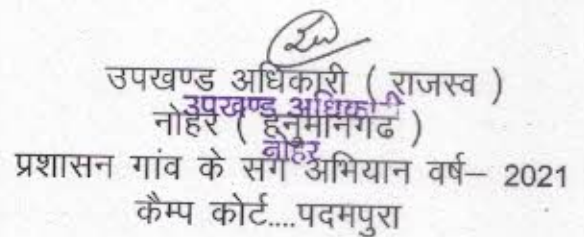 उपखण्ड अधिकारी ( राजस्व )
उपखण्ड अधिकारी
नोहर ( हनुमानगढ )
नोहर
प्रशासन गांव के संग अभियान वर्ष– 2021
कैम्प कोर्ट....पदमपुरा